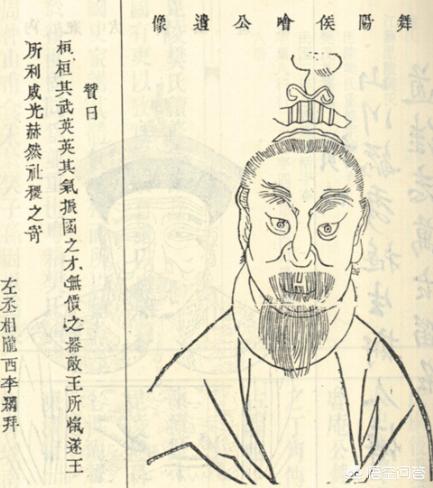 舞陽侯噲公遺像
贊曰
桓桓其武英英其氣振國之才無價之器敵王所愾遂王
所利威光赫然社稷之寄
左丞相隴西李拜
悟空问答